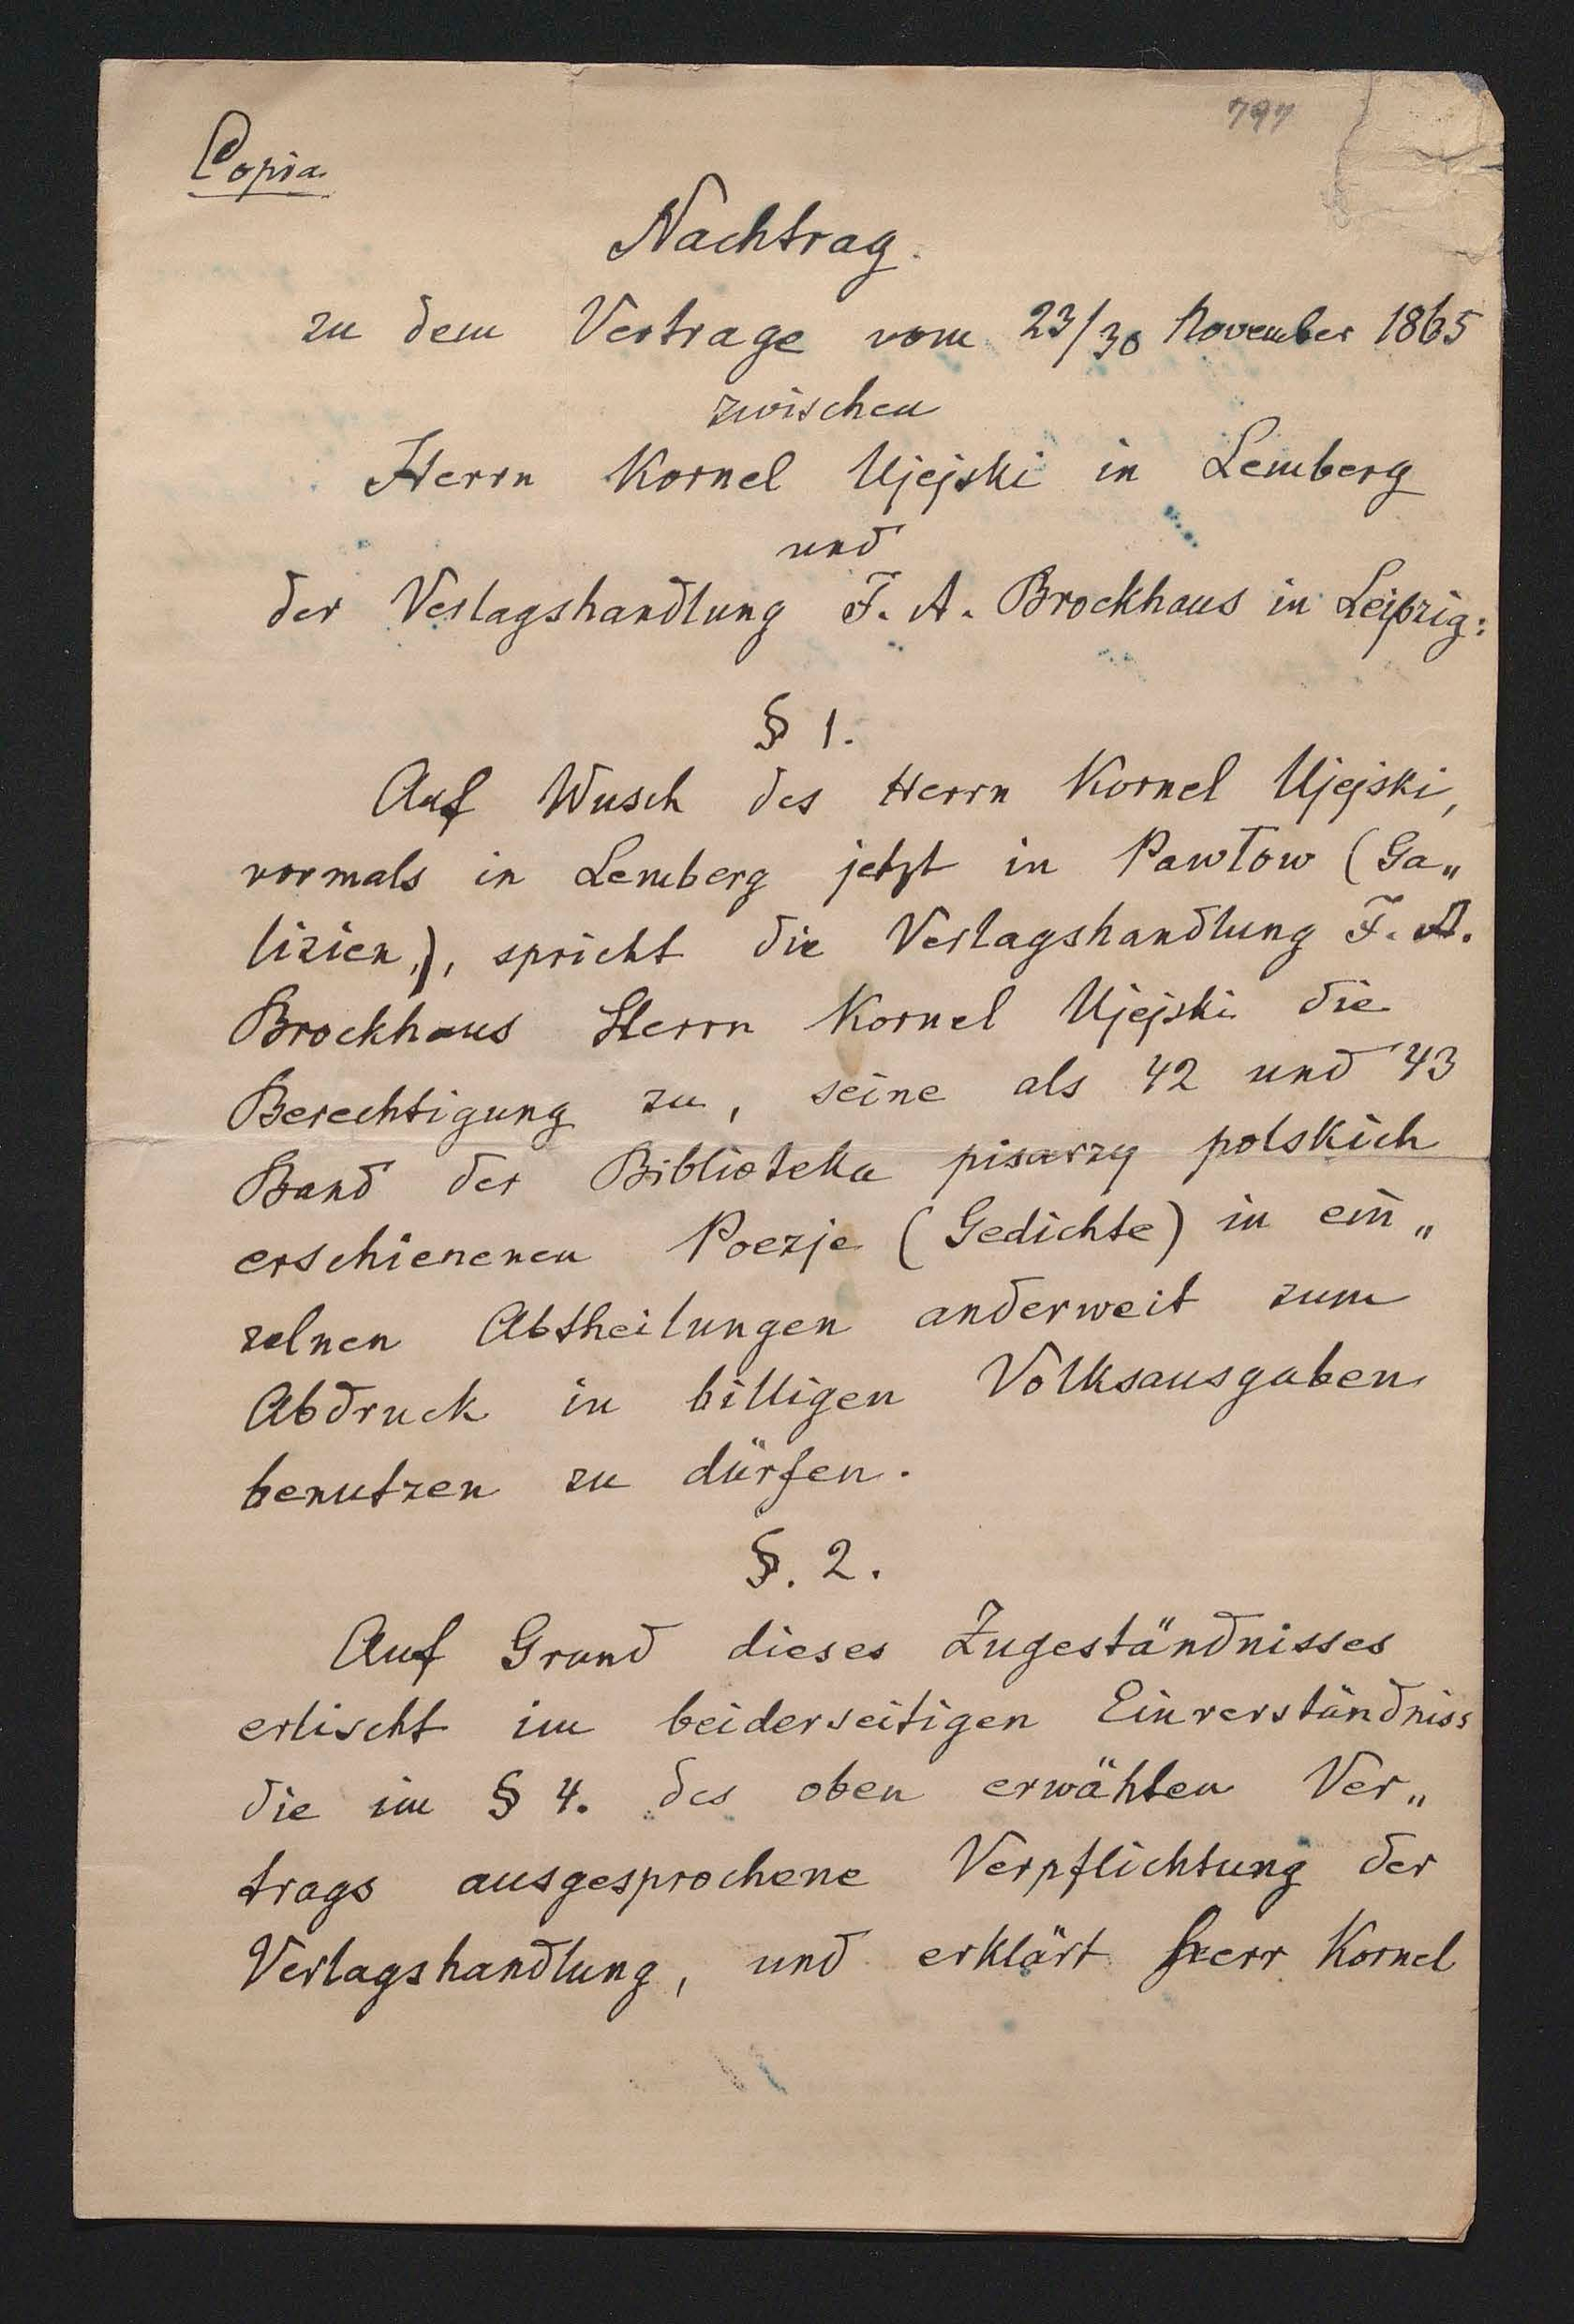 797
Copia
Nachtrag.
zu dem Vertrage vom 23/30 November 1865
zwischen
Herrn Kornel Ujejski in Lemberg
und
der Verlagshandlung F. A. Brockhaus in Leipzig:
§ 1.
Auf Wusch des Herrn Kornel Ujejski,
vormals in Lemberg jetzt in Pawłow (Ga„
lizien,), spricht die Verlagshandlung F. A.
Brockhaus Herrn Kornel Ujejski die
Berechtigung zu, seine als 42 und 43
Band der Biblioteka pisarzy polskich
erschienenen Poezje (Gedichte) in ein„
zelnen Abtheilungen anderweit zum
Abdruck in billigen Volksausgaben
benutzen zu dürfen.
§. 2.
Auf Grund dieses Zugeständnisses
erlischt im beiderseitigen Einverständniss
die im § 4. des oben erwähten Ver„
trags ausgesprochene Verpflichtung der
Verlagshandlung, und erklärt Herr Kornel